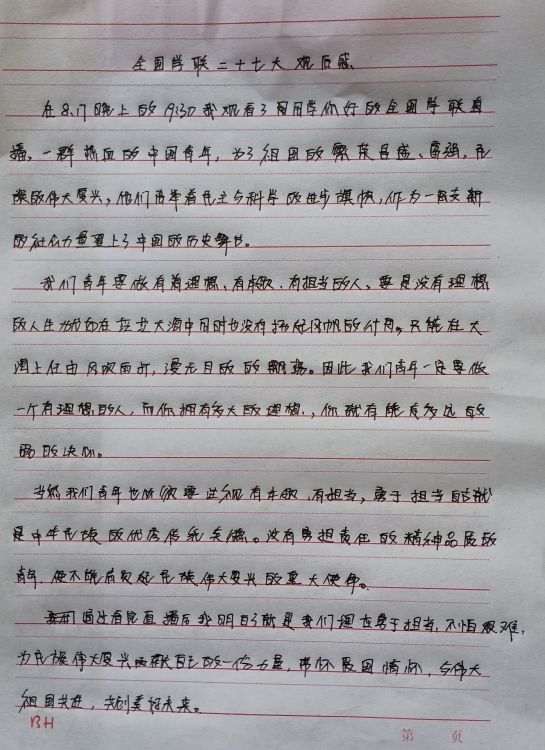 全国学联二十七大观后感
在8.17晚上的9:30我观看了同同学你好的全国学联直
播,一群热血的中国青年,为了祖国的繁荣昌盛、富强,民
族的伟大复兴,他们高举着民主与科学的进步旗帜,作为一股支新
的社会力量登上了中国的历史舞台。
我们青年要做有着理想、有本领、有担当的人,要是没有理想
的人生为犹如在茫茫大海中同时也没有扬起风帆的行舟。只能在大
海上任由风吹雨打,漫无目的的飘荡。因此我们青年一定要做
一个有理想的人,而你拥有多大的理想,你就有能有多远的
路的决心。
当然我们青年也必须要进行有本领,有担当,勇于担当自古就
是中华民族的优良传统美德。没有勇担责任的精神品质的
青年,便不能肩负起民族伟大复兴的重大使命。
通过看完直播后我明白了就是我们理当勇于担当,不怕艰难,
为民族伟大复兴贡献自己的一份力量,带怀爱国情怀,与伟大
祖国共进,共创美好未来。
BH
第 页